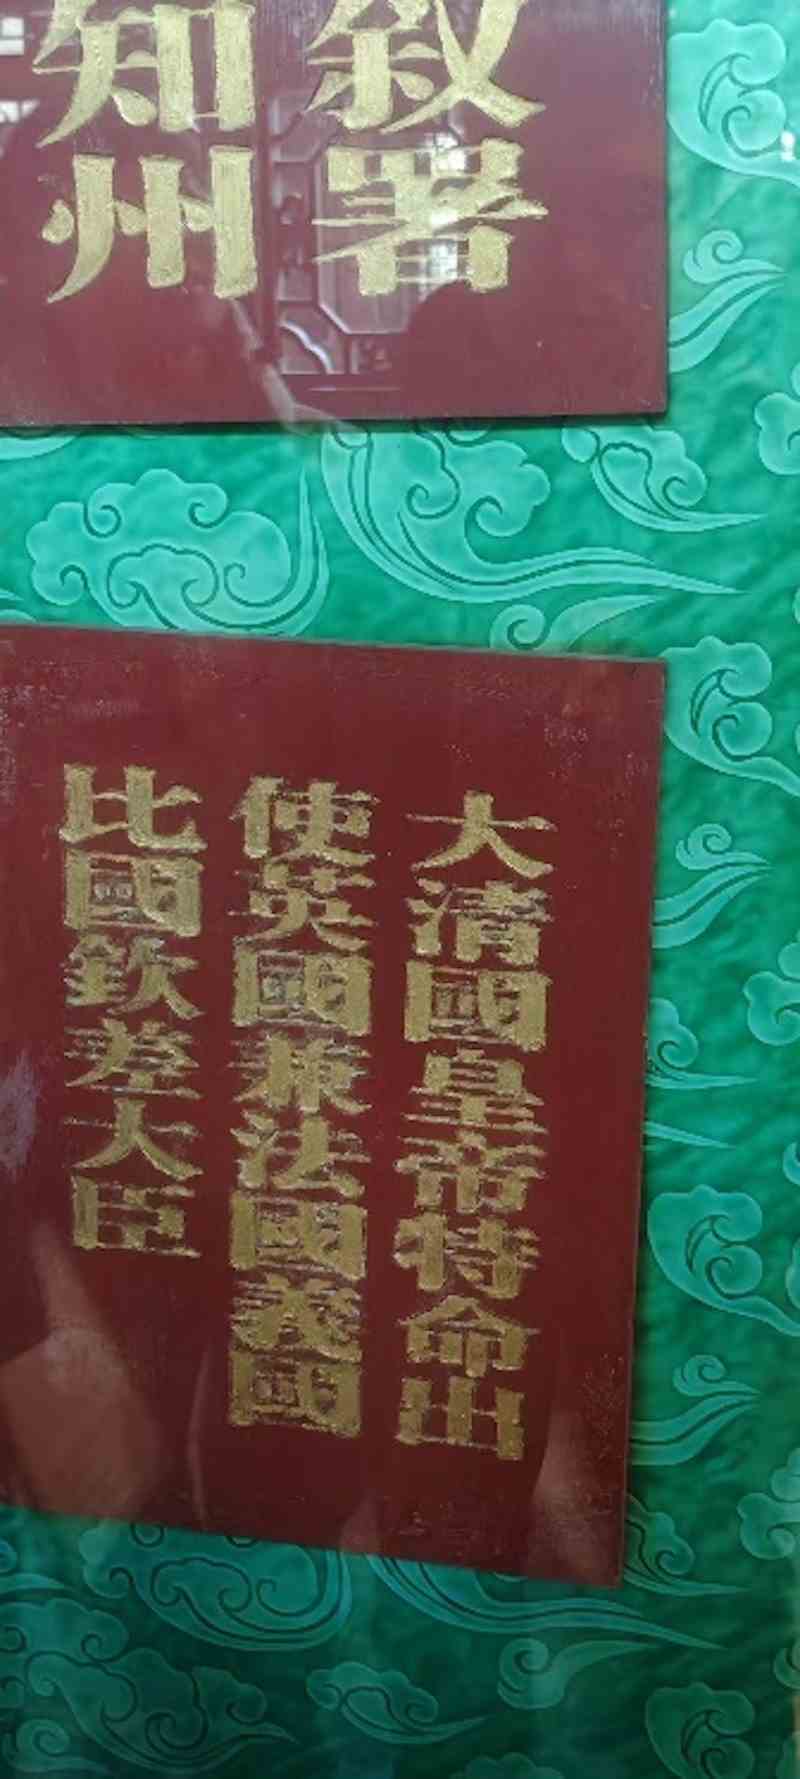 敘署
知州
大清國皇帝特命出
使英國兼法國義國
比國欽差大臣